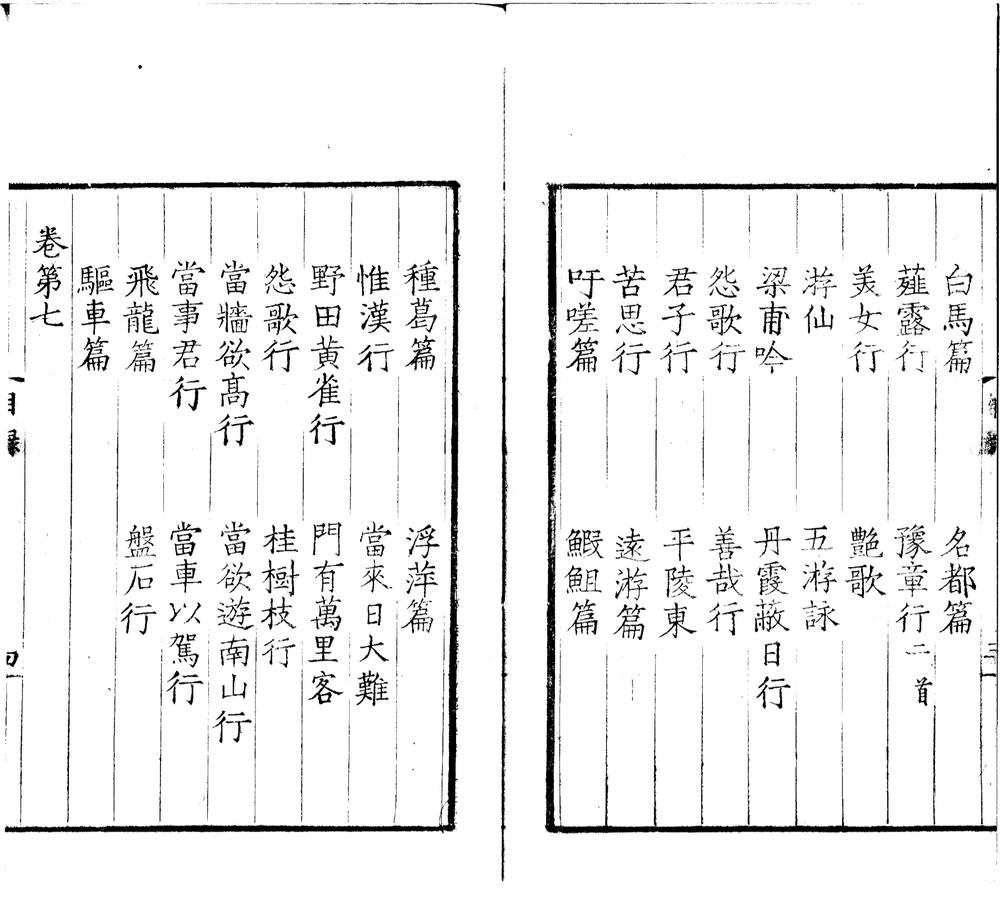 白馬篇　名都篇
薤露行　豫章行二首
美女行　艷歌
游仙　五游詠
梁甫吟　丹霞蔽日行
怨歌行　善哉行
君子行　平陵東
苦思行　遠游篇
吁嗟篇　鰕䱇篇
種葛篇　浮萍篇
惟漢行　當來日大難
野田黄雀行　門有萬里客
怨歌行　桂樹枝行
當牆欲髙行　當欲遊南山行
當事君行　當車以駕行
飛龍篇　盤石行
驅車篇
卷第七
目録
四